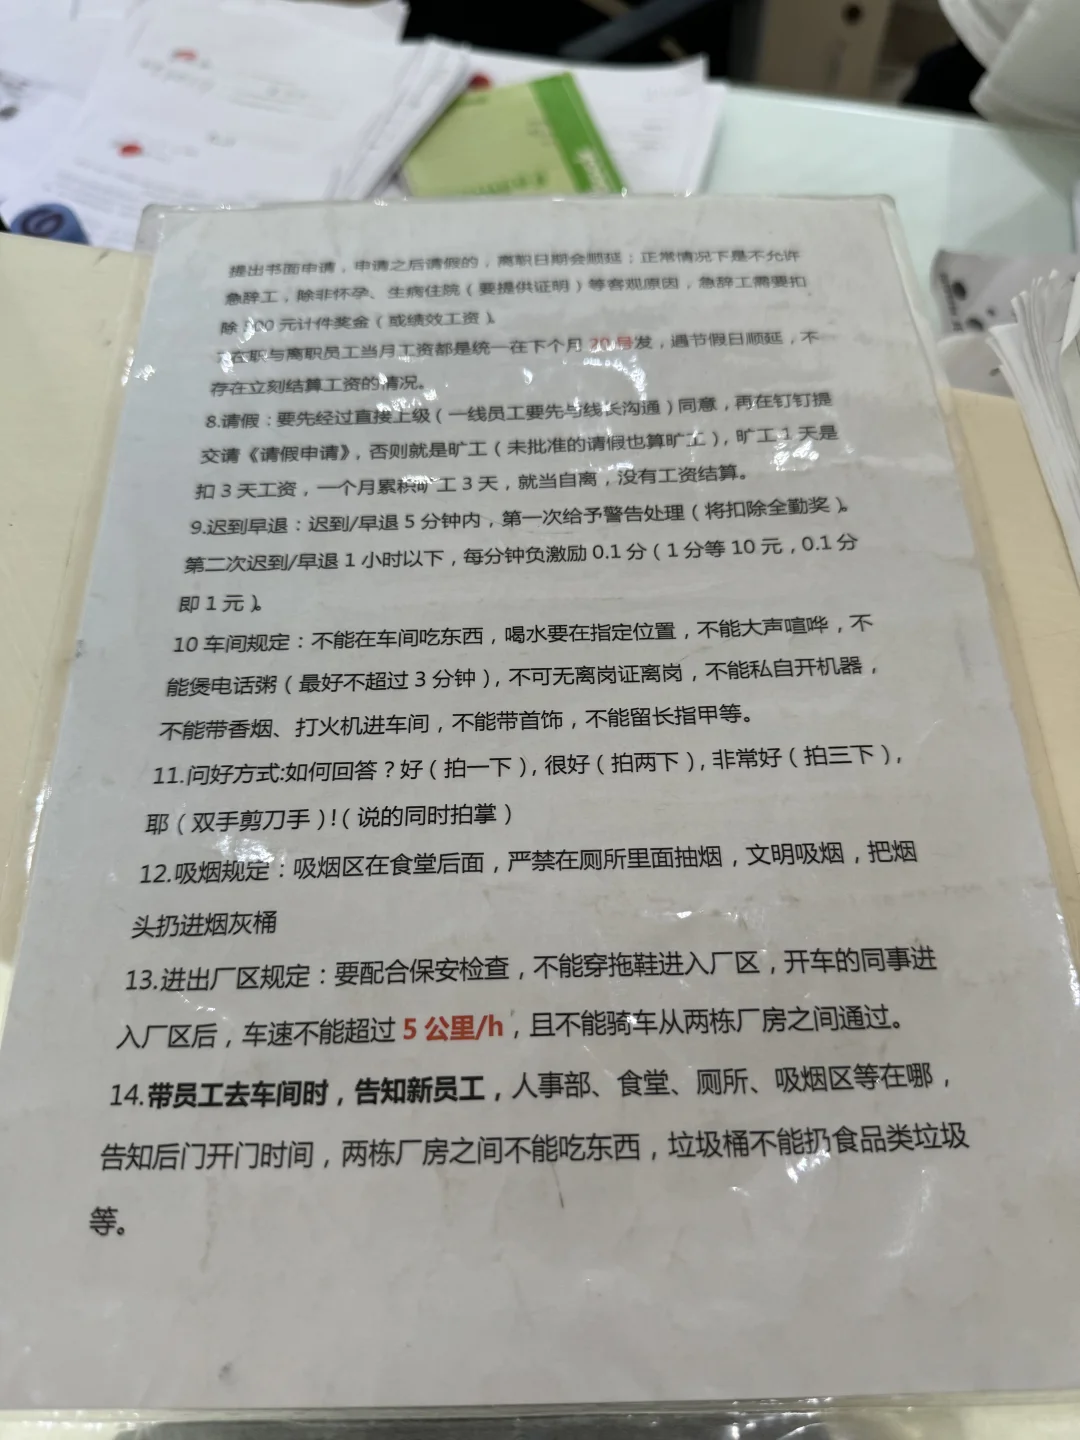 提出书面申请，申请之后请假的，离职日期会顺延；正常情况下是不允许
急辞工，除非怀孕、生病住院（要提供证明）等客观原因，急辞工需要扣
除 00 元计件奖金（或绩效工资）。
在职与离职员工当月工资都是统一在下个月 20 号发，遇节假日顺延，不
存在立刻结算工资的情况。
8.请假：要先经过直接上级（一线员工要先与线长沟通）同意，再在钉钉提
交请《请假申请》，否则就是旷工（未批准的请假也算旷工），旷工 1 天是
扣 3 天工资，一个月累积旷工 3 天，就当自离，没有工资结算。
9.迟到早退：迟到/早退 5 分钟内，第一次给予警告处理（将扣除全勤奖）。
第二次迟到/早退 1 小时以下，每分钟负激励 0.1 分（1 分等 10 元，0.1 分
即 1 元）。
10 车间规定：不能在车间吃东西，喝水要在指定位置，不能大声喧哗，不
能煲电话粥（最好不超过 3 分钟），不可无离岗证离岗，不能私自开机器，
不能带香烟、打火机进车间，不能带首饰，不能留长指甲等。
11.问好方式:如何回答？好（拍一下）,很好（拍两下）,非常好（拍三下），
耶（双手剪刀手）!（说的同时拍掌）
12.吸烟规定：吸烟区在食堂后面，严禁在厕所里面抽烟，文明吸烟，把烟
头扔进烟灰桶
13.进出厂区规定：要配合保安检查，不能穿拖鞋进入厂区，开车的同事进
入厂区后，车速不能超过 5 公里/h，且不能骑车从两栋厂房之间通过。
14.带员工去车间时，告知新员工，人事部、食堂、厕所、吸烟区等在哪，
告知后门开门时间，两栋厂房之间不能吃东西，垃圾桶不能扔食品类垃圾
等。